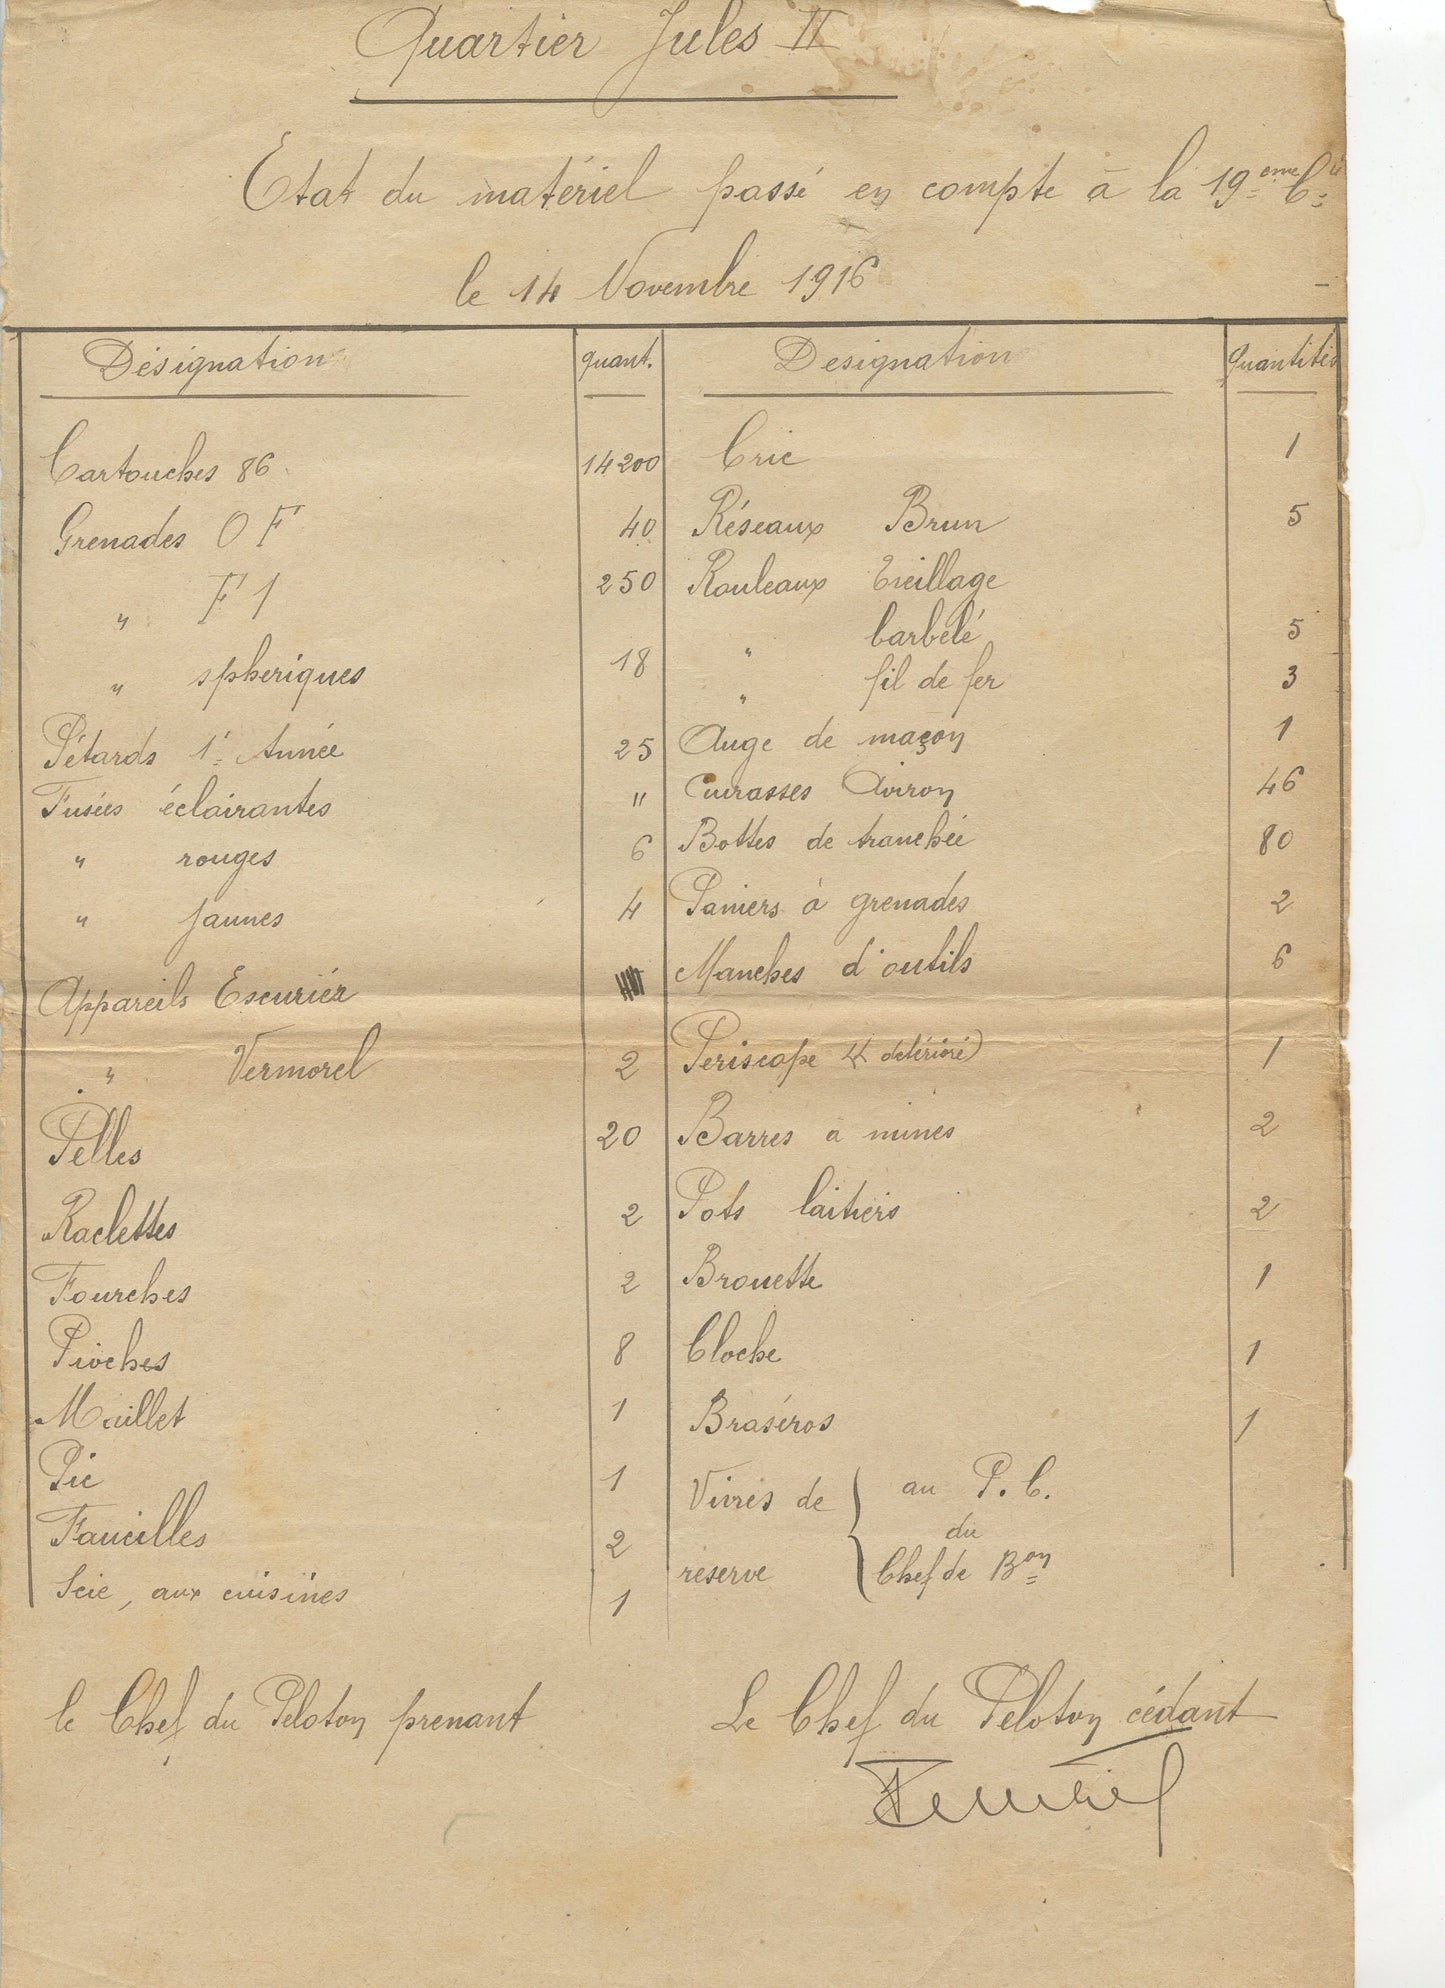 Quartier Jules II
Etat du matériel passé en compte à la 19ème Cie
le 14 Novembre 1916
Désignation quant. Designation Quantités
Cartouches 86 14200 Cric 1
Grenades OF 40 Réseaux Brun 5
" F1 250 Rouleaux treillage
" spheriques 18 " barbelé 5
" fil de fer 3
Pétards 1e Année 25 Auge de maçon 1
Fusées éclairantes " Cuirasses Aviron 46
" rouges 6 Bottes de tranchée 80
" jaunes 4 Paniers à grenades 2
Appareils Manches d'outils 6
" Vermorel 2 Periscope détérioré) 1
Pelles 20 Barres a mines 2
Raclettes 2 Pots laitiers 2
Fourches 2 Brouette 1
Pioches 8 Cloche 1
Maillet 1 Braséros 1
Pic 1 Vivres de réserve { au P.C.
Faucilles 2 du
Scie, aux cuisines 1 Chef de Bon
le Chef du Peloton prenant Le Chef du Peloton cédant